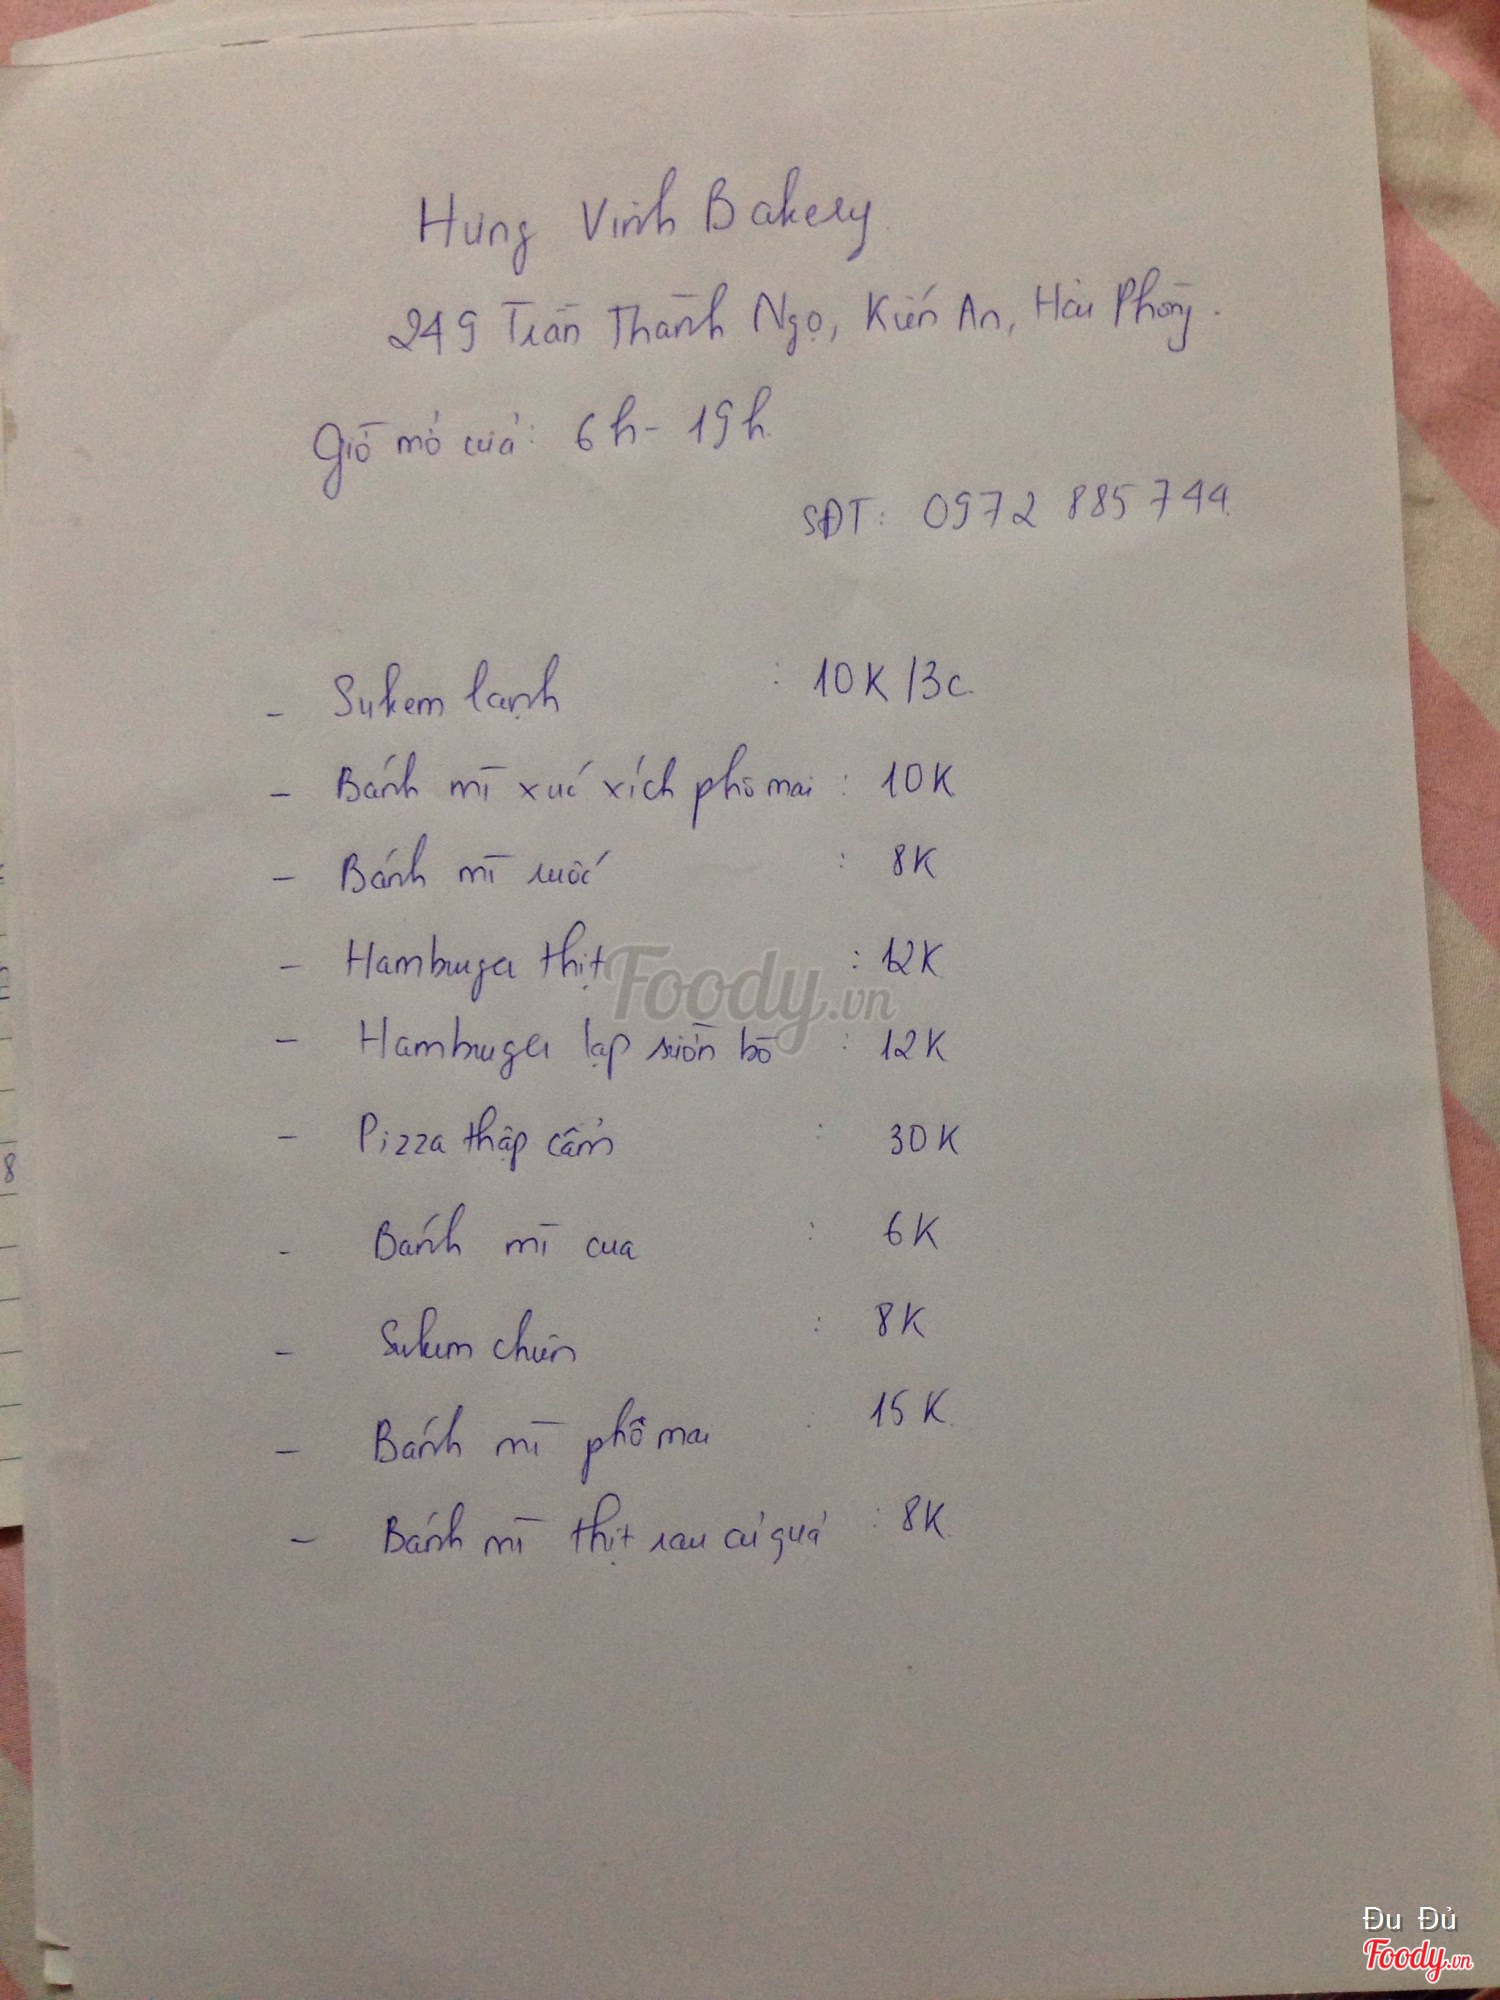 Hưng Vinh Bakery
249 Trần Thành Ngọ, Kiến An, Hải Phòng.
Giờ mở cửa: 6h - 19h
SĐT: 0972 885 744
- Sukem lạnh : 10K/3c
- Bánh mì xúc xích phô mai : 10K
- Bánh mì ruốc : 8K
- Hamburger thịt : 12K
- Hamburger lạp sườn bò : 12K
- Pizza thập cẩm : 30K
- Bánh mì cua : 6K
- Sukem chiên : 8K
- Bánh mì phô mai : 15K
- Bánh mì thịt rau củ quả : 8K
Foody.vn
8
Đu Đủ
Foody.vn